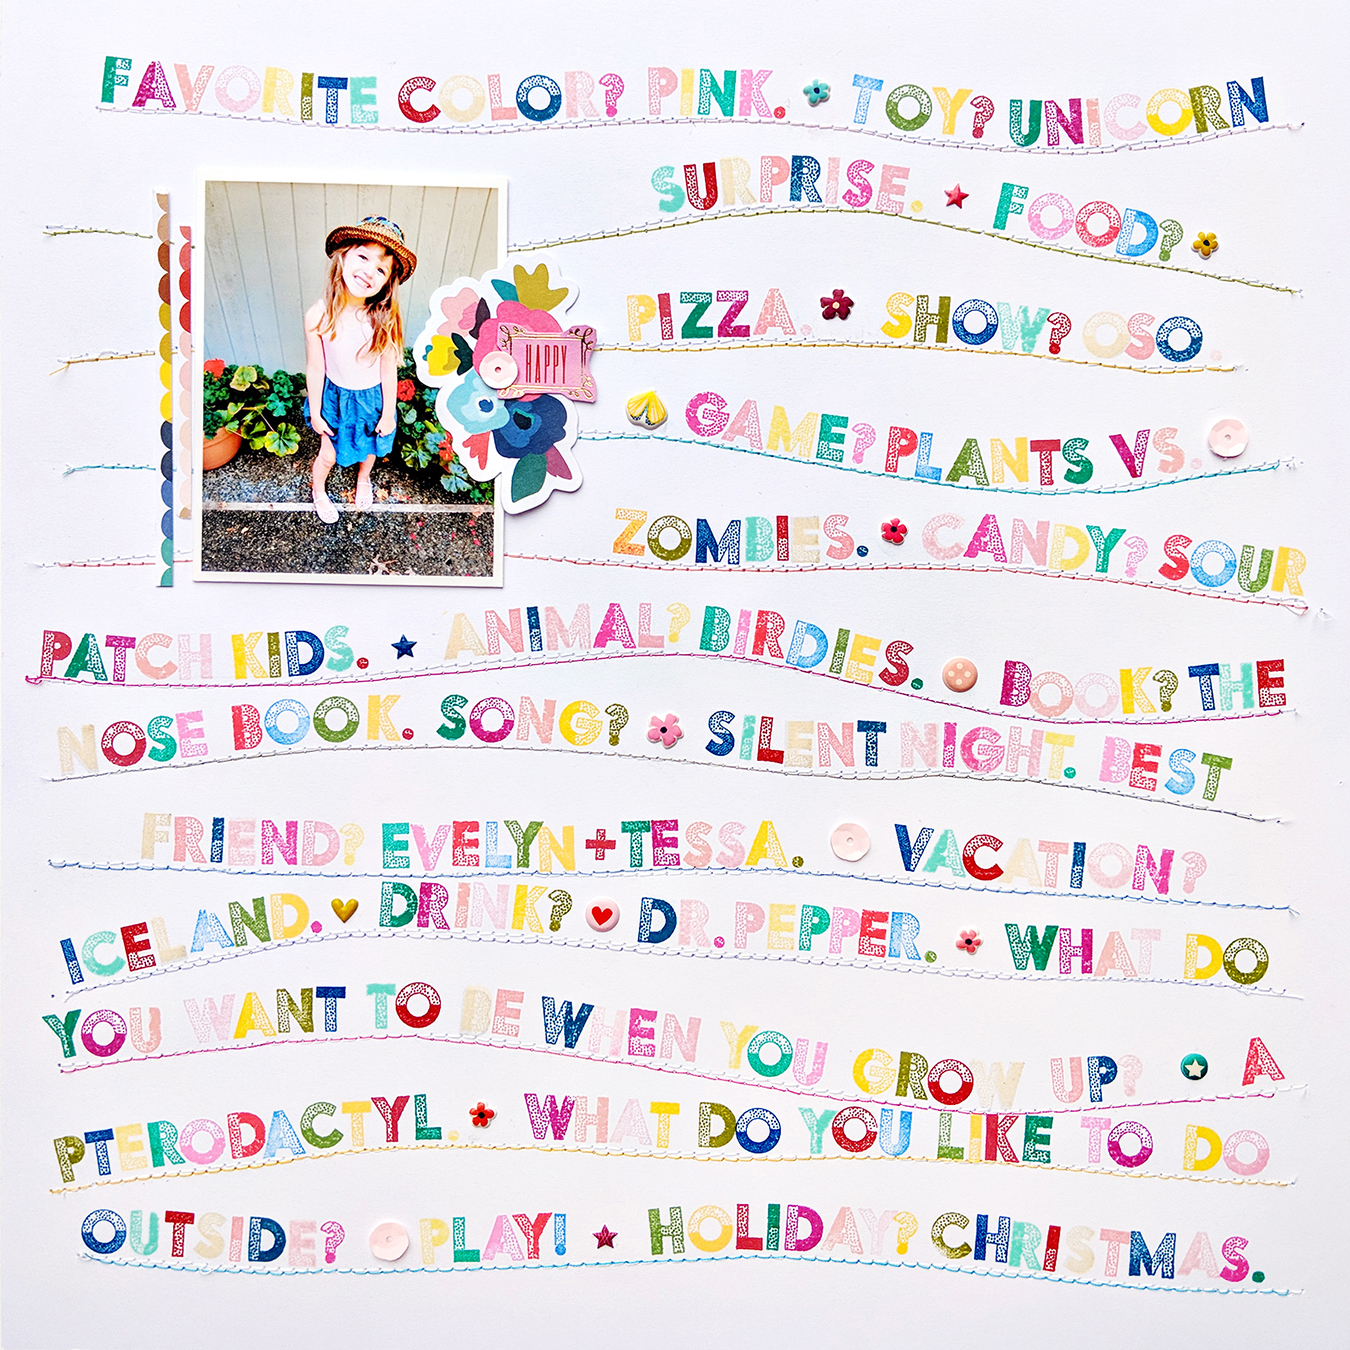 FAVORITE COLOR? PINK. TOY? UNICORN
SURPRISE. FOOD?
PIZZA. SHOW? OSO.
HAPPY
GAME? PLANTS VS.
ZOMBIES. CANDY? SOUR
PATCH KIDS. ANIMAL? BIRDIES. BOOK? THE
NOSE BOOK. SONG? SILENT NIGHT. BEST
FRIEND? EVELYN+TESSA. VACATION?
ICELAND. DRINK? DR. PEPPER. WHAT DO
YOU WANT TO BE WHEN YOU GROW UP? A
PTERODACTYL. WHAT DO YOU LIKE TO DO
OUTSIDE? PLAY! HOLIDAY? CHRISTMAS.